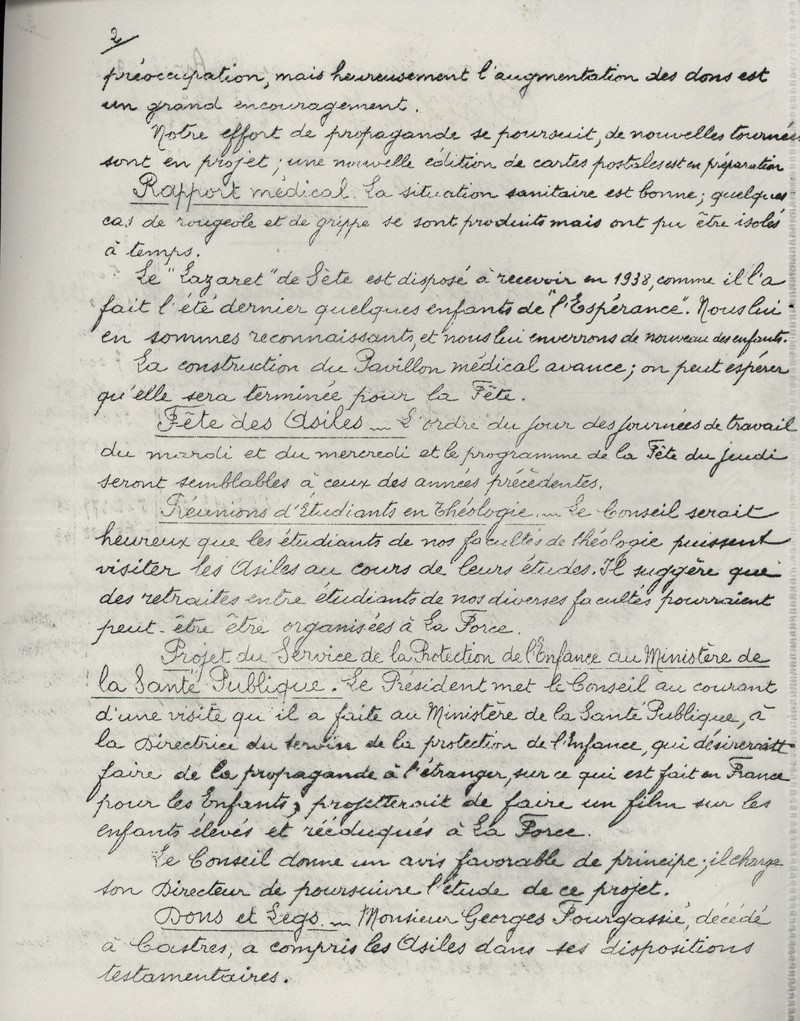 2/
préoccupation, mais heureusement l'augmentation des dons est
un grand encouragement.
Notre effort de propagande se poursuit, de nouvelles tournées
sont en projet; une nouvelle édition de cartes postales est en préparation
Rapport médical. La situation sanitaire est bonne; quelques
cas de rougeole et de grippe se sont produits mais ont pu être isolés
à temps.
Le "Lazaret" de Sète est disposé à recevoir en 1938, comme il l'a
fait l'été dernier quelques enfants de "l'Espérance". Nous lui
en sommes reconnaissants, et nous lui enverrons de nouveau des enfants.
La construction du Pavillon médical avance; on peut espérer
qu'elle sera terminée pour la Fête.
Fête des Asiles _ L'ordre du jour des journées de travail
du mardi et du mercredi et le programme de la Fête du jeudi
seront semblables à ceux des années précédentes.
Réunions d'Etudiants en Théologie. _ Le Conseil serait
heureux que les étudiants de nos facultés de théologie puissent
visiter les Asiles au cours de leurs études. Il suggère que
des retraites entre étudiants de nos diverses facultés pourraient
peut-être être organisées à La Force.
Projet du Service de la Protection de l'Enfance au Ministère de
la Santé Publique. Le Président met le Conseil au courant
d'une visite qu'il a faite au Ministère de la Santé Publique, à
la Directrice du service de la protection de l'Enfance, qui désirerait
faire de la propagande à l'étranger, sur ce qui est fait en France
pour les Enfants, projetterait de faire un film sur les
enfants élevés et rééduqués à La Force.
Le Conseil donne un avis favorable de principe; il charge
son Directeur de poursuivre l'étude de ce projet.
Dons et Legs. _ Monsieur Georges Fourgassié, décédé
à Castres, a compris les Asiles dans ses dispositions
testamentaires.